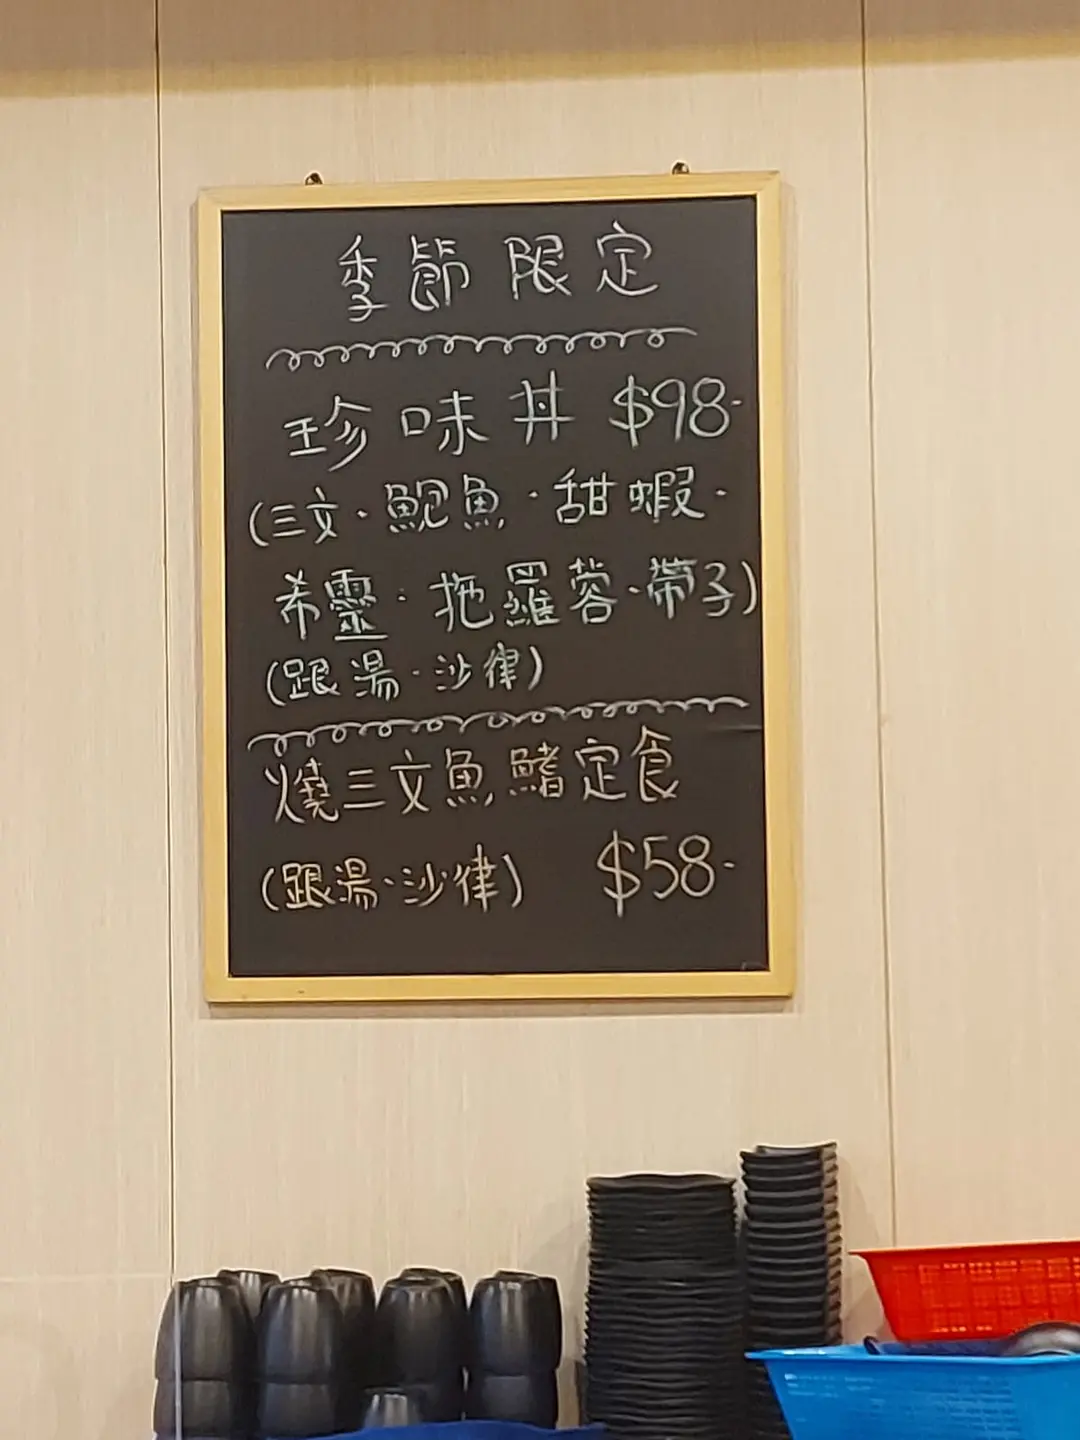 季節限定
珍味丼 $98-
(三文·鮑魚·甜蝦·
希靈·拖羅蓉·帶子)
(跟湯·沙律)
燒三文魚鰭定食
(跟湯·沙律) $58-